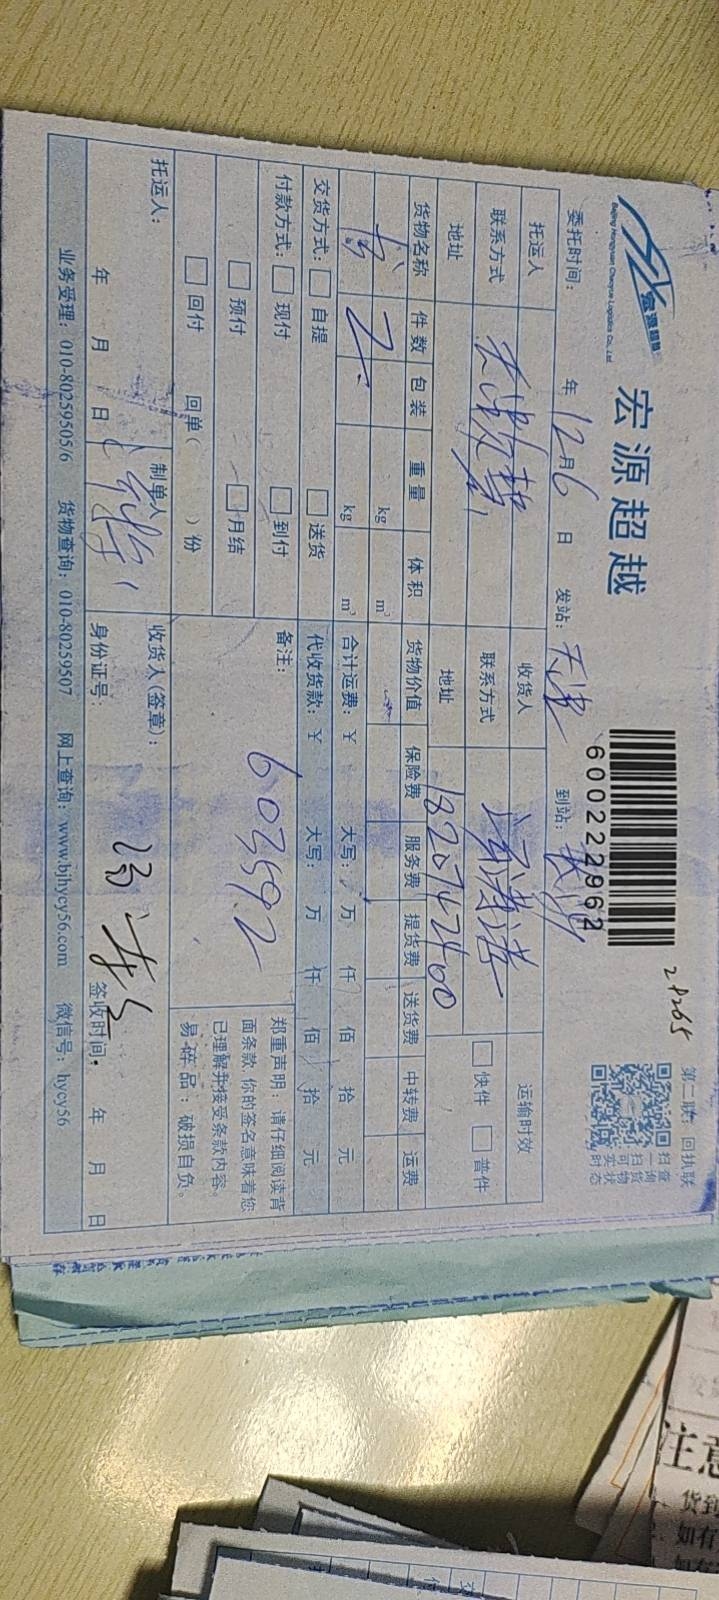 宏源超越
Beijing Hongyuan Chaoyue Logistics Co., Ltd.
宏源超越
600222962
28265
第二联：回执联
扫查
一询
扫货
可物
实状
时态
委托时间： 年 12月6 日 发站：天津 到站：长沙
托运人 收货人 运输时效
联系方式 联系方式 快件 普件
地址 地址 1820742400
货物名称 件数 包装 重量 体积 货物价值 保险费 服务费 提货费 送货费 中转费 运费
书 kg m³
kg m³ 合计运费：¥ 大写： 万 仟 佰 拾 元
交货方式： 自提 送货 代收货款：¥ 大写： 万 仟 佰 拾 元
付款方式： 现付 到付 备注：
预付 月结 603592
回付 回单（ ）份
郑重声明：请仔细阅读背
面条款，你的签名意味着您
已理解并接受条款内容。
易碎品：破损自负。
托运人： 制单人 收货人（签章）：
年 月 日 身份证号： 签收时间： 年 月 日
业务受理：010-80259505/6 货物查询：010-80259507 网上查询：www.bjhycy56.com 微信号：hycy56
注意
货到
如有
如有